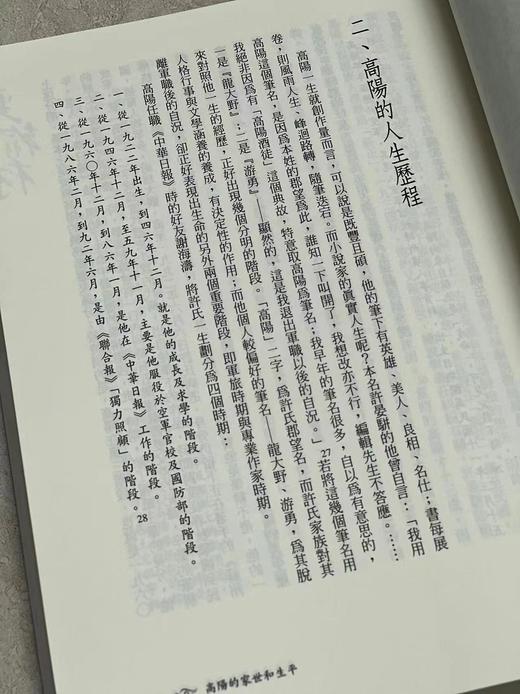 二、高陽的人生歷程
高陽一生就創作量而言，可以說是既豐且碩，他的筆下有英雄、美人、良相、名仕；書每展
卷，則風雨人生、峰迴路轉，隨筆迭宕。而小說家的真實人生呢？本名許晏駢的他曾自言：「我用
高陽這個筆名，是因為本姓的郡望為此，誰知一下叫開了，我想改亦不行，編輯先生不答應。……
我絕非因為有「高陽酒徒」這個典故，特意取高陽為筆名；我早年的筆名很多，自以為有意思的，
一是『龍大野』；二是『游勇』——顯然的，這是我退出軍職以後的自況。」27若將這幾個筆名用
來對照他一生的經歷，正好出現幾個分明的階段。「高陽」二字，為許氏郡望名，而許氏家族對其
人格行事與文學涵養的養成，有決定性的作用；而他個人較偏好的筆名——龍大野、游勇，為其脫
離軍職後的自況，卻正好表現出生命的另外兩個重要階段，即軍旅時期與專業作家時期。
高陽任職《中華日報》時的好友謝海濤，將許氏一生劃分為四個時期：
一、從一九二二年出生，到四六年十二月。就是他的成長及求學的階段。
二、從一九四六年十二月，至五九年十一月，主要是他服役於空軍官校及國防部的階段。
三、從一九六〇年十二月，到八六年一月，是他在《中華日報》工作的階段。
四、從一九八六年二月，到九二年六月，是由《聯合報》「獨力照顧」的階段。28
高陽的家世和生平